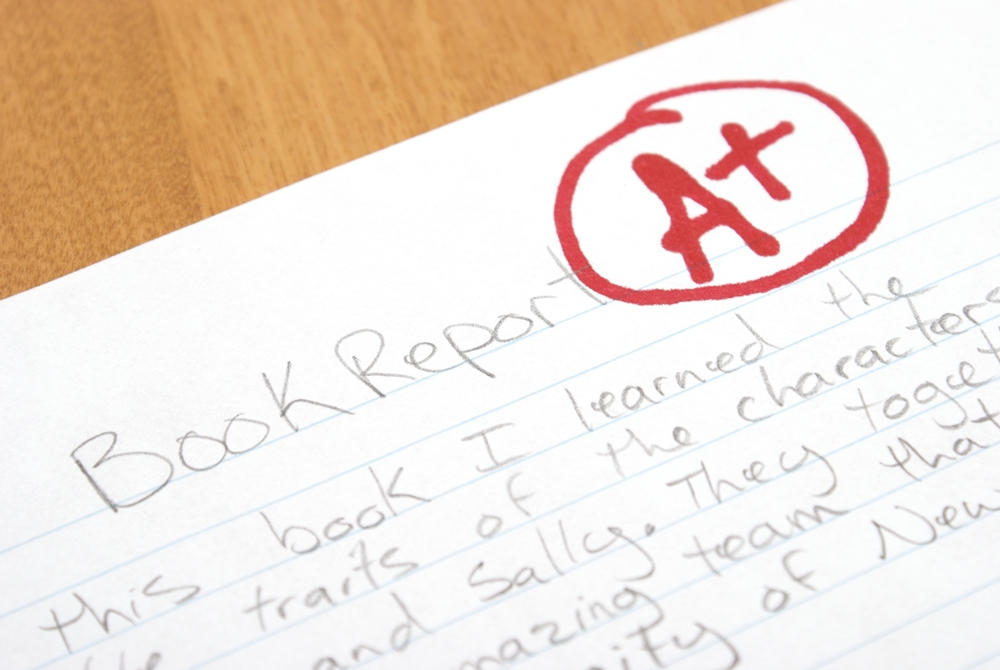 A+
Book Report
this book I learned the
traits of the characters
and Sally. They toget
amazing team that
of New